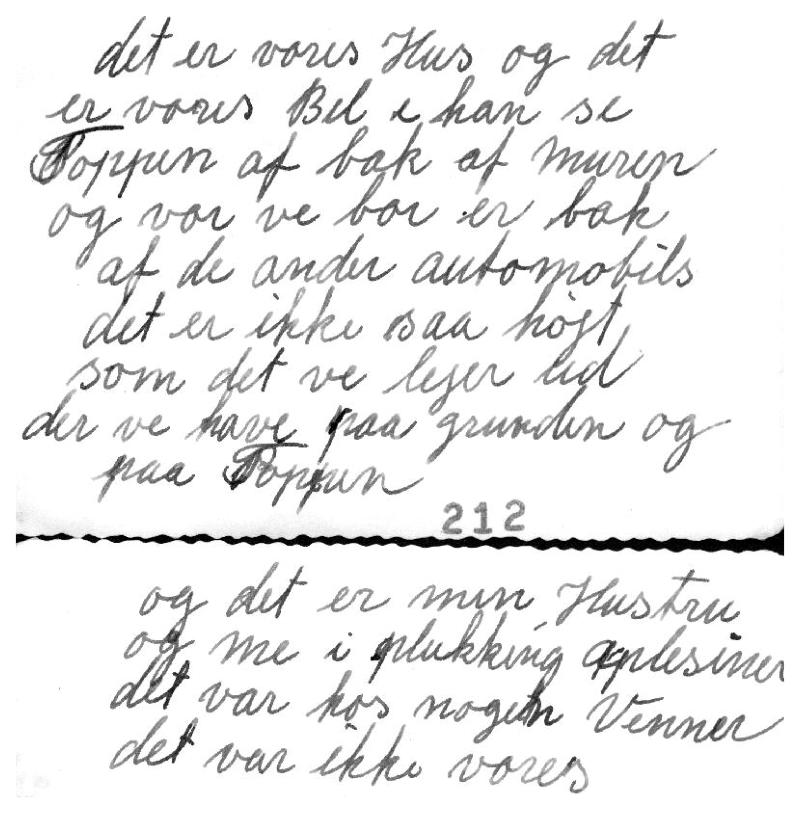 det er vores Hus og det
er vores Bil i kan se
Toppen af bak af muren
og vor ve bor er bak
af de ander automobils
det er ikke saa højt
som det ve lejer ud
der ve have paa grunden og
paa Toppen
212
og det er min Hustru
og me i plukking aplesiner
det var hos nogen Venner
det var ikke vores